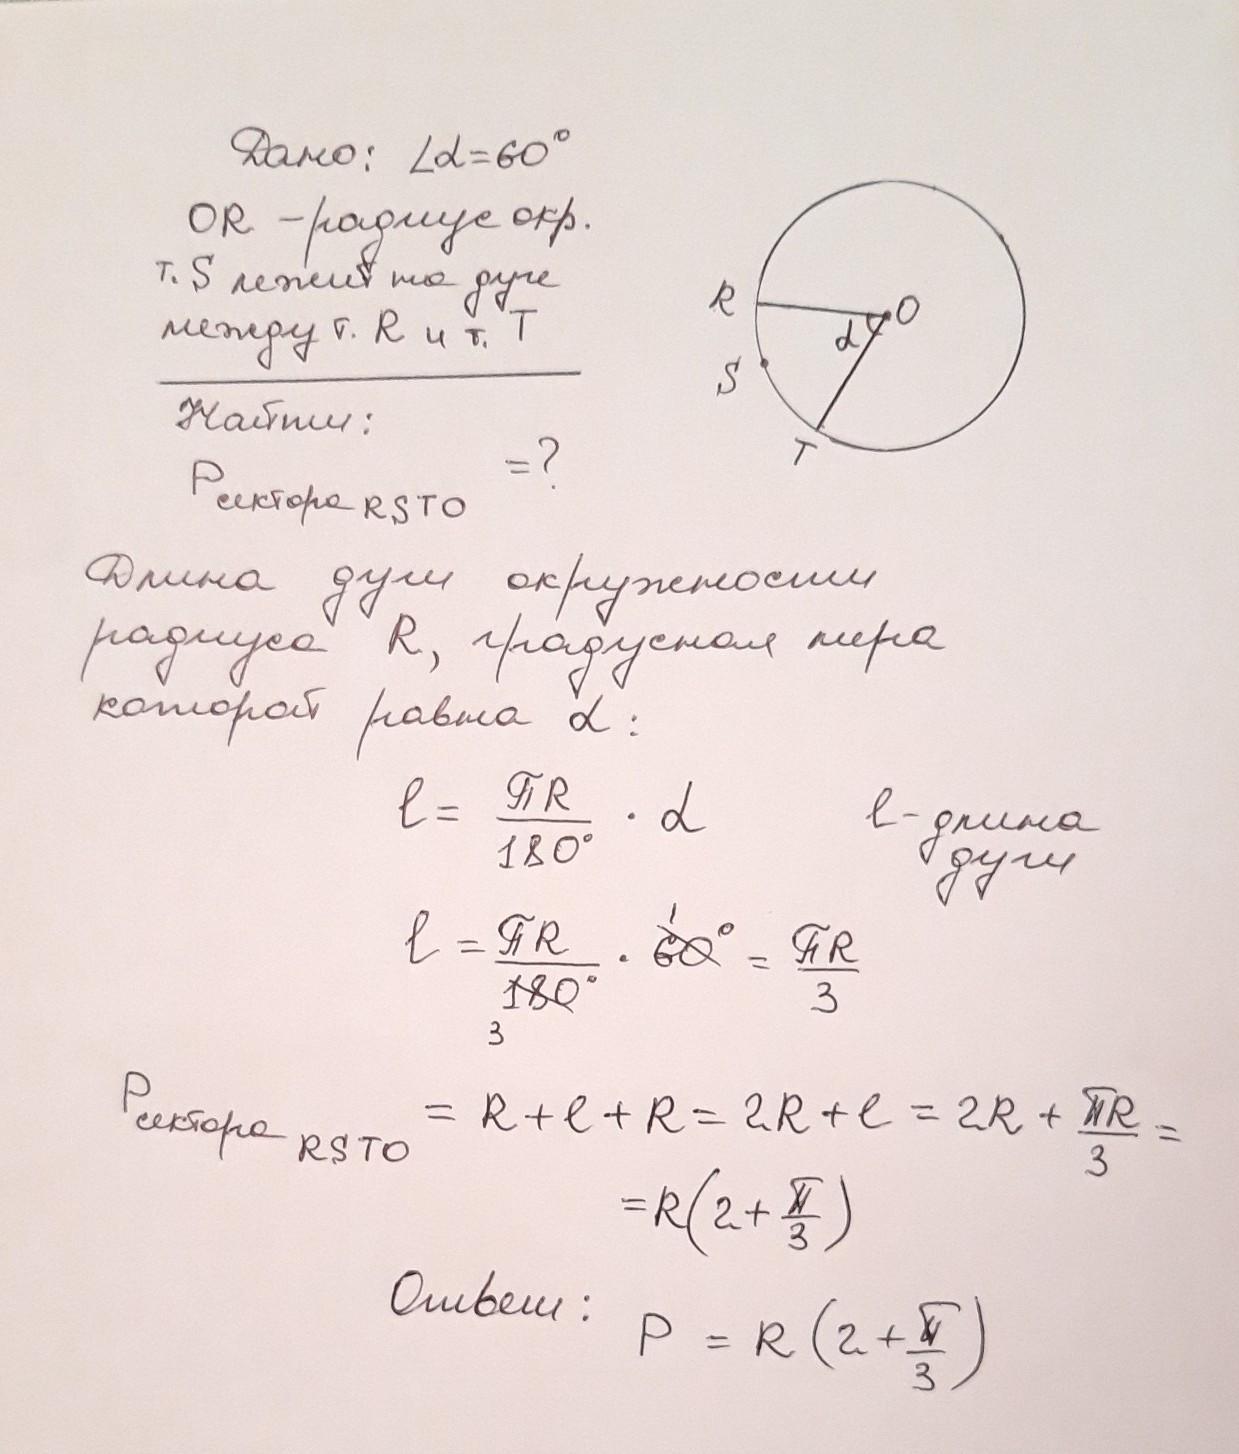 Дано: ∠α=60°
OR – радиус окр.
т. S лежит на дуге
между т. R и т. T
Найти:
P сектора RSTO =?
R
O
α
S
T
Длина дуги окружности
радиуса R, градусная мера
которой равна α:
l = πR/180° · α
l – длина
дуги
l = πR/180° · 60° = πR/3
1
3
P сектора RSTO = R + l + R = 2R + l = 2R + πR/3 =
= R(2 + π/3)
Ответ: P = R(2 + π/3)